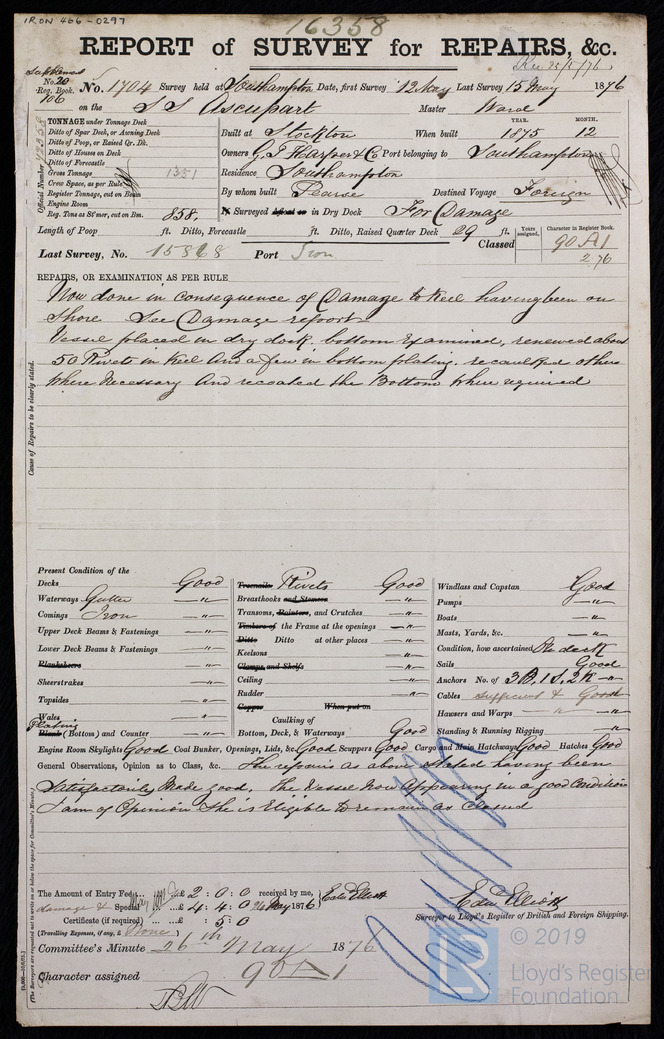 IRON 466-0297
16358
REPORT of SURVEY for REPAIRS, &c.
Rec 25/5/76
No. 20
Reg. Book.
106
No. 1704 Survey held at Southampton, Date, first Survey 12 May Last Survey 15 May 1876
on the S S Ascupart Master Ward
TONNAGE under Tonnage Deck
Ditto of Spar Deck, or Awning Deck
Ditto of Poop, or Raised Qr. Dk.
Ditto of Houses on Deck
Ditto of Forecastle
Gross Tonnage 1351
Crew Space, as per Rule
Register Tonnage, out on Beam
Engine Room
Reg. Tons as St'mer, cut on Bm. 858.
Official Number
YEAR. MONTH.
Built at Stockton When built 1875 12
Owners G. T Harper & Co Port belonging to Southampton
Residence Southampton
By whom built Pearse Destined Voyage Foreign
If Surveyed afloat or in Dry Dock For Damage
Length of Poop ft. Ditto, Forecastle ft. Ditto, Raised Quarter Deck 29 ft.
Classed
Years assigned.
Character in Register Book.
90 A 1
2.76
Last Survey, No. 15868 Port Iron
REPAIRS, OR EXAMINATION AS PER RULE
Now done in consequence of Damage to Keel having been on
Shore See Damage report
Vessel placed in dry dock, bottom Examined, renewed about
50 Rivets in Keel And a few in bottom plating. recaulked others
where Necessary And recoated the Bottom where required
Cause of Repairs to be clearly stated.
Present Condition of the
Decks Good
Waterways Gutter — " —
Comings Iron — " —
Upper Deck Beams & Fastenings — " —
Lower Deck Beams & Fastenings — " —
Planksheers
Sheerstrakes — " —
Topsides — " —
Wales
Plating
Plank (Bottom) and Counter — " —
Treenails Rivets Good
Breasthooks and Stemson — " —
Transoms, Pointers, and Crutches — " —
Timbers of the Frame at the openings — " —
Ditto Ditto at other places — " —
Keelsons — " —
Clamps and Shelfs
Ceiling — " —
Rudder — " —
Copper When put on
Caulking of
Bottom, Deck, & Waterways Good
Windlass and Capstan Good
Pumps — " —
Boats — " —
Masts, Yards, &c. — " —
Condition, how ascertained On deck
Sails Good
Anchors No. of 3 B, 1 S, 2 K — " —
Cables sufficient & Good
Hawsers and Warps — " — — " —
Standing & Running Rigging — " —
Engine Room Skylights Good Coal Bunker, Openings, Lids, &c. Good Scuppers Good Cargo and Main Hatchways Good Hatches Good
General Observations, Opinion as to Class, &c. The repairs as above Stated having been
Satisfactorily Made good. The Vessel Now Appearing in a good Condition
I am of Opinion She is Eligible to remain as Classed
The Amount of Entry Fee £ 2 : 0 : 0 received by me,
damage & Special £ 4 : 4 : 0 24 May 1876
Certificate (if required) £ : 5 0
(Travelling Expenses, if any, £ None)
Edwd Elliott
Edwd Elliott
Surveyor to Lloyd's Register of British and Foreign Shipping.
Committee's Minute 26th May 1876
Character assigned 90 A 1
(The Surveyors are requested not to write on or below the space for Committee's Minute.)
© 2019
Lloyd's Register
Foundation